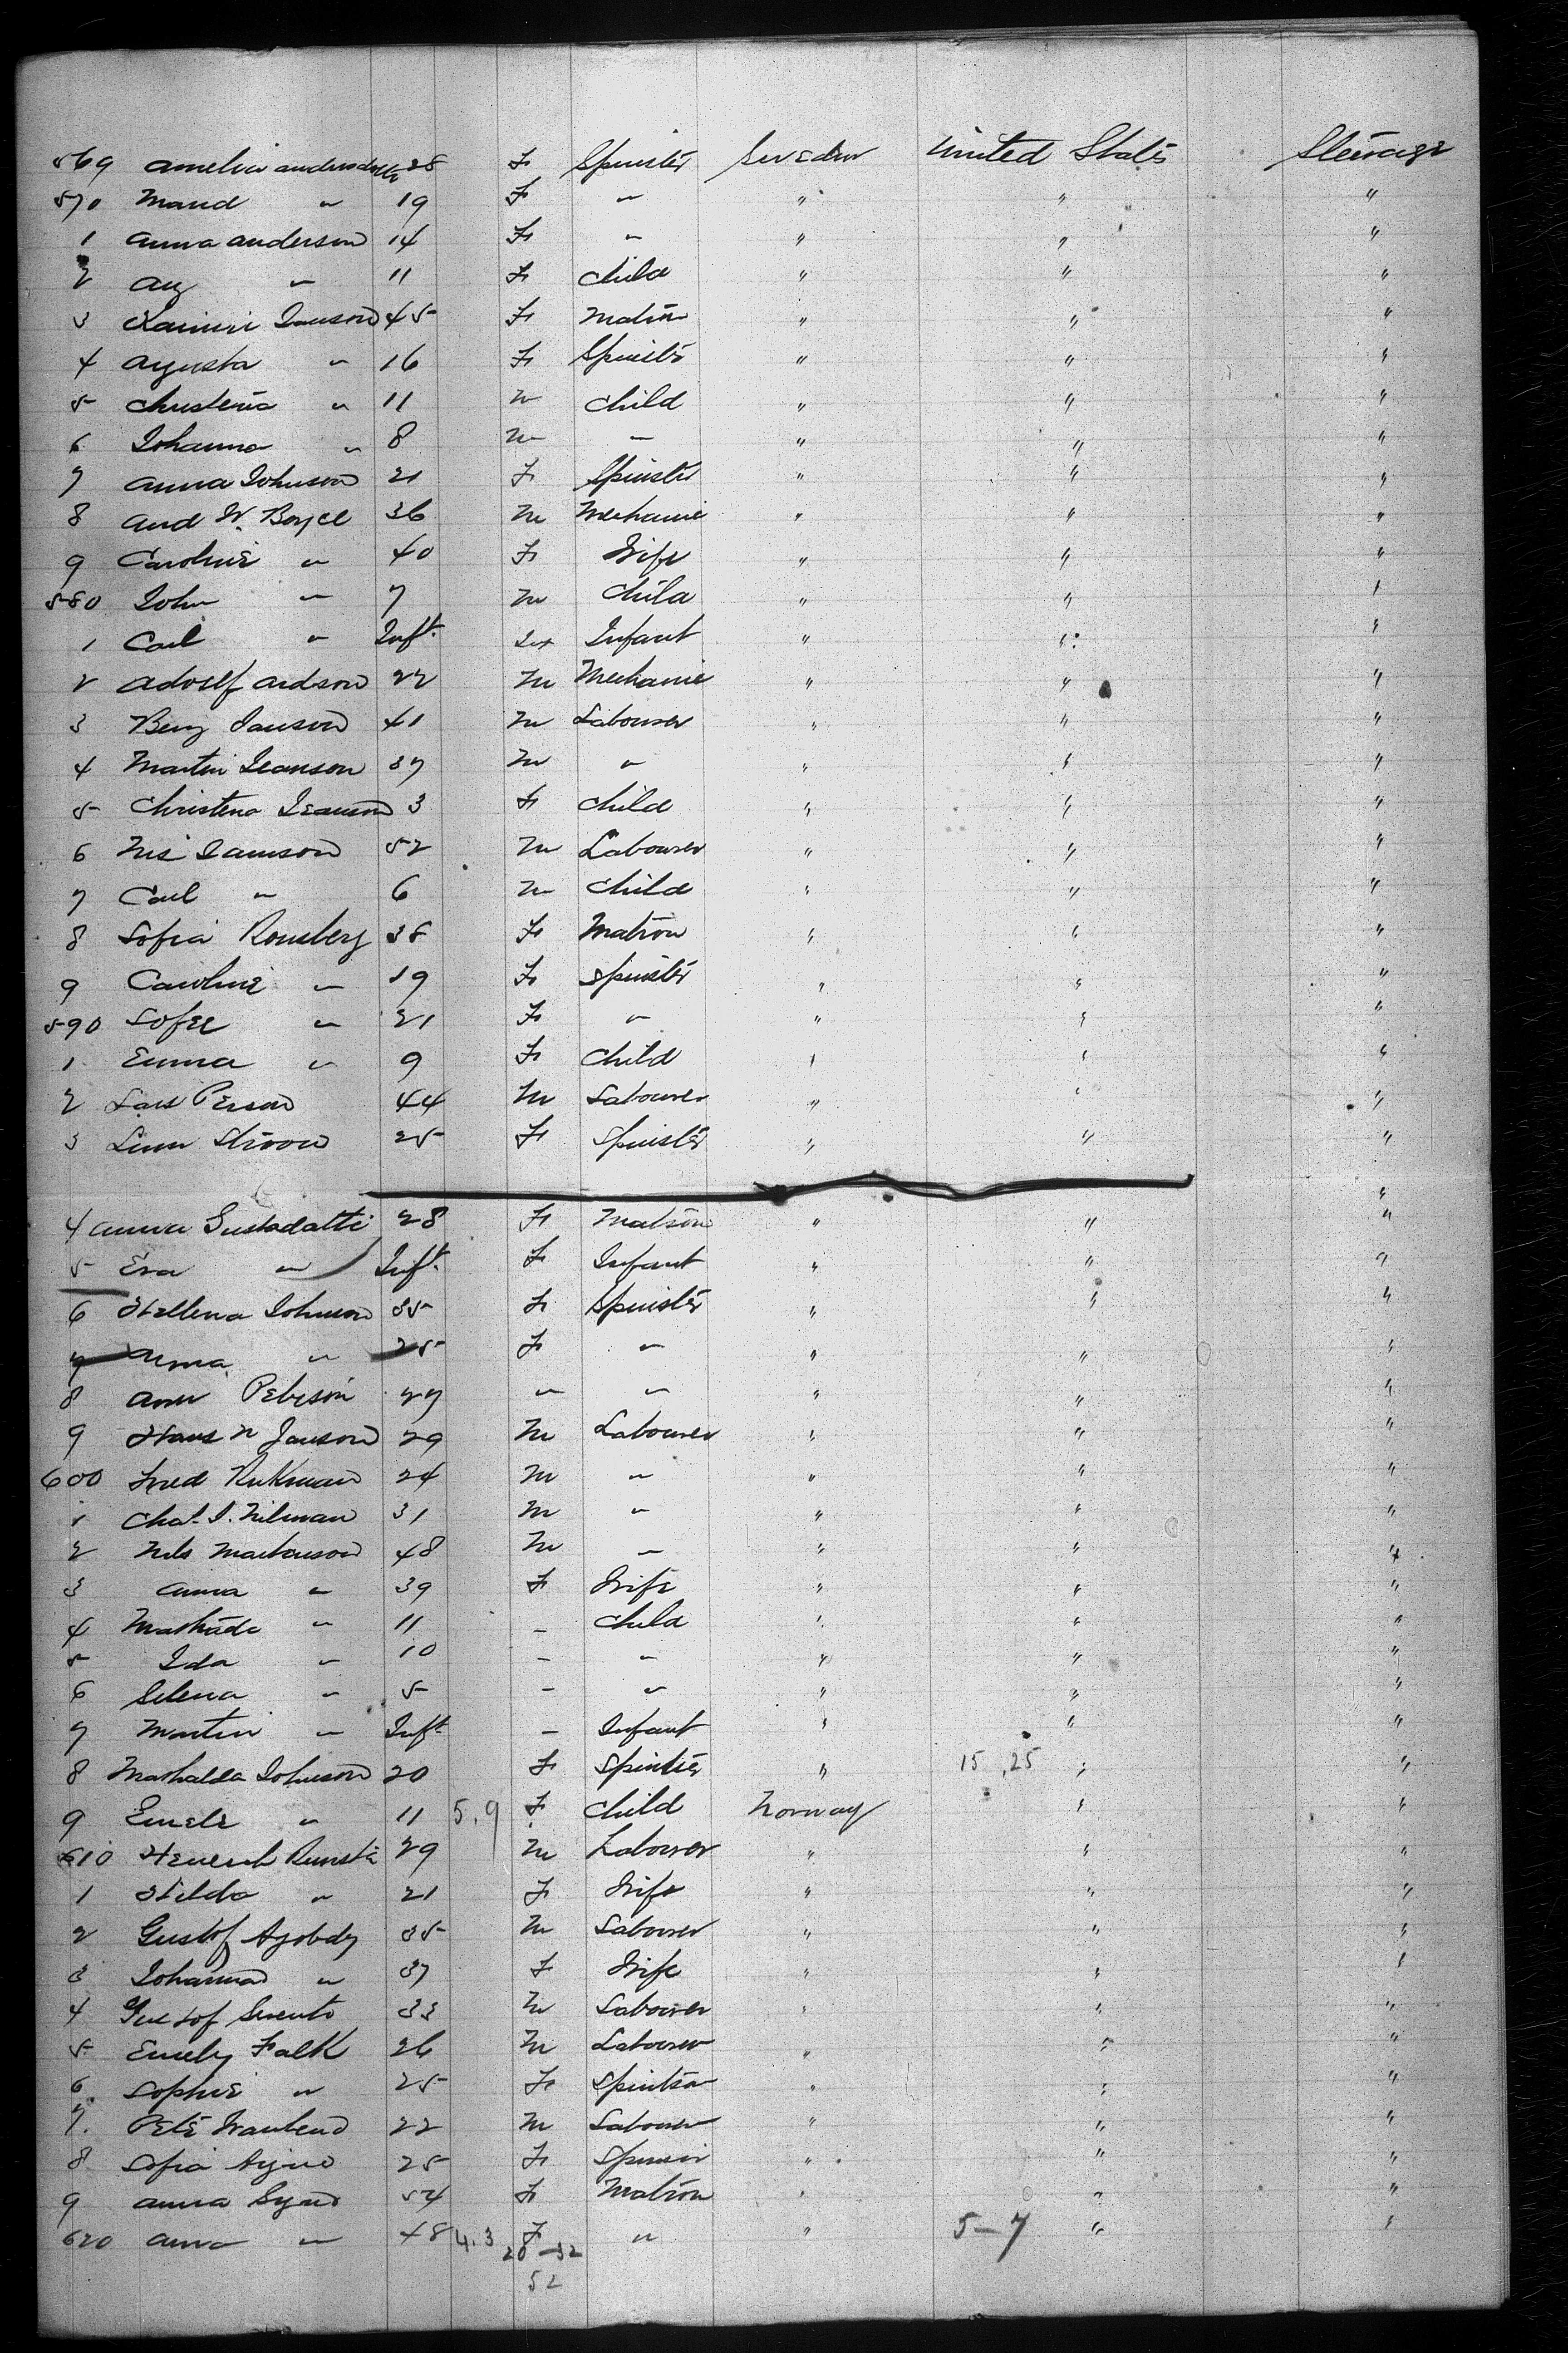 569 Amelia Andersdotte 28 F Spinster Sweden United States Steerage
570 Maud " 19 F " " " "
1 Anna Anderson 14 F " " " "
2 Aug " 11 F Child " " "
3 Janson 45 F Matron " " "
4 Agusta " 16 F Spinster " " "
5 Christena " 11 m Child " " "
6 Johanna " 8 m " " " "
7 Anna Johnson 21 F Spinster " " "
8 And W. Boyce 36 m Mechanic " " "
9 Caroline " 40 F Wife " " "
580 John " 7 m Child " " "
1 Carl " Inft. Infant " " "
2 Adolf Ardson 22 m Mechanic " " "
3 Benj Janson 41 m Labourer " " "
4 Martin Jeanson 37 m " " " "
5 Christena Jeanson 3 F Child " " "
6 Nis Janson 52 m Labourer " " "
7 Carl " 6 m Child " " "
8 Sofia Ronsberg 38 F Matron " " "
9 Caroline " 19 F Spinster " " "
590 Sofee " 21 F " " " "
1 Emma " 9 F Child " " "
2 Lars Person 44 m Labourer " " "
3 Linn 25 F Spinster " " "
"
4 Anna Gustadatti 28 F Matron " " "
5 Eva " Inft. F Infant " " "
6 Hellena Johnson 35 F Spinster " " "
7 " 25 F " " " "
8 Ann Peterson 27 " " " " "
9 Hans N Janson 29 m Labourer " " "
600 Fred Rukman 24 m " " " "
1 Chas. J. Nilman 31 m " " " "
2 Nils 48 m " " " "
3 Anna " 39 F Wife " " "
4 " 11 - Child " " "
5 Ida " 10 - " " " "
6 Selena " 5 - " " " "
7 Martin " Inft - Infant " " "
8 Mashalda Johnson 20 F Spinster " 15 , 25 " "
9 Emele " 11 5.9 F Child Norway " "
610 29 m Labourer " " "
1 Hilda " 21 F Wife " " "
2 Gustof 35 m Labourer " " "
3 Johanna " 37 F Wife " " "
4 Gustof 33 m Labourer " " "
5 Emely Falk 26 m Labourer " " "
6 Sophie " 25 F " " "
7. Pete 22 m Labourer " " "
8 Sofia 25 F " " "
9 Anna 54 F Matron " " "
620 Anna " 48 4.3 F " " 5-7 " "
20-32
52